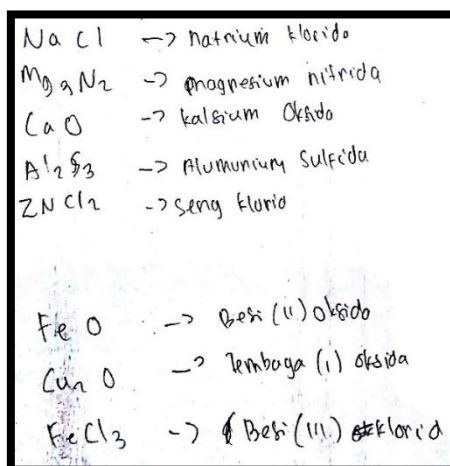 NaCl -> natrium klorido
Mg3N2 -> magnesium nitrida
CaO -> kalsium Oksido
Al2S3 -> Alumunium Sulfida
ZNCl2 -> seng klorid
FeO -> Besi (II) Oksido
Cu2O -> Tembaga (I) oksida
FeCl3 -> Besi (III) klorid